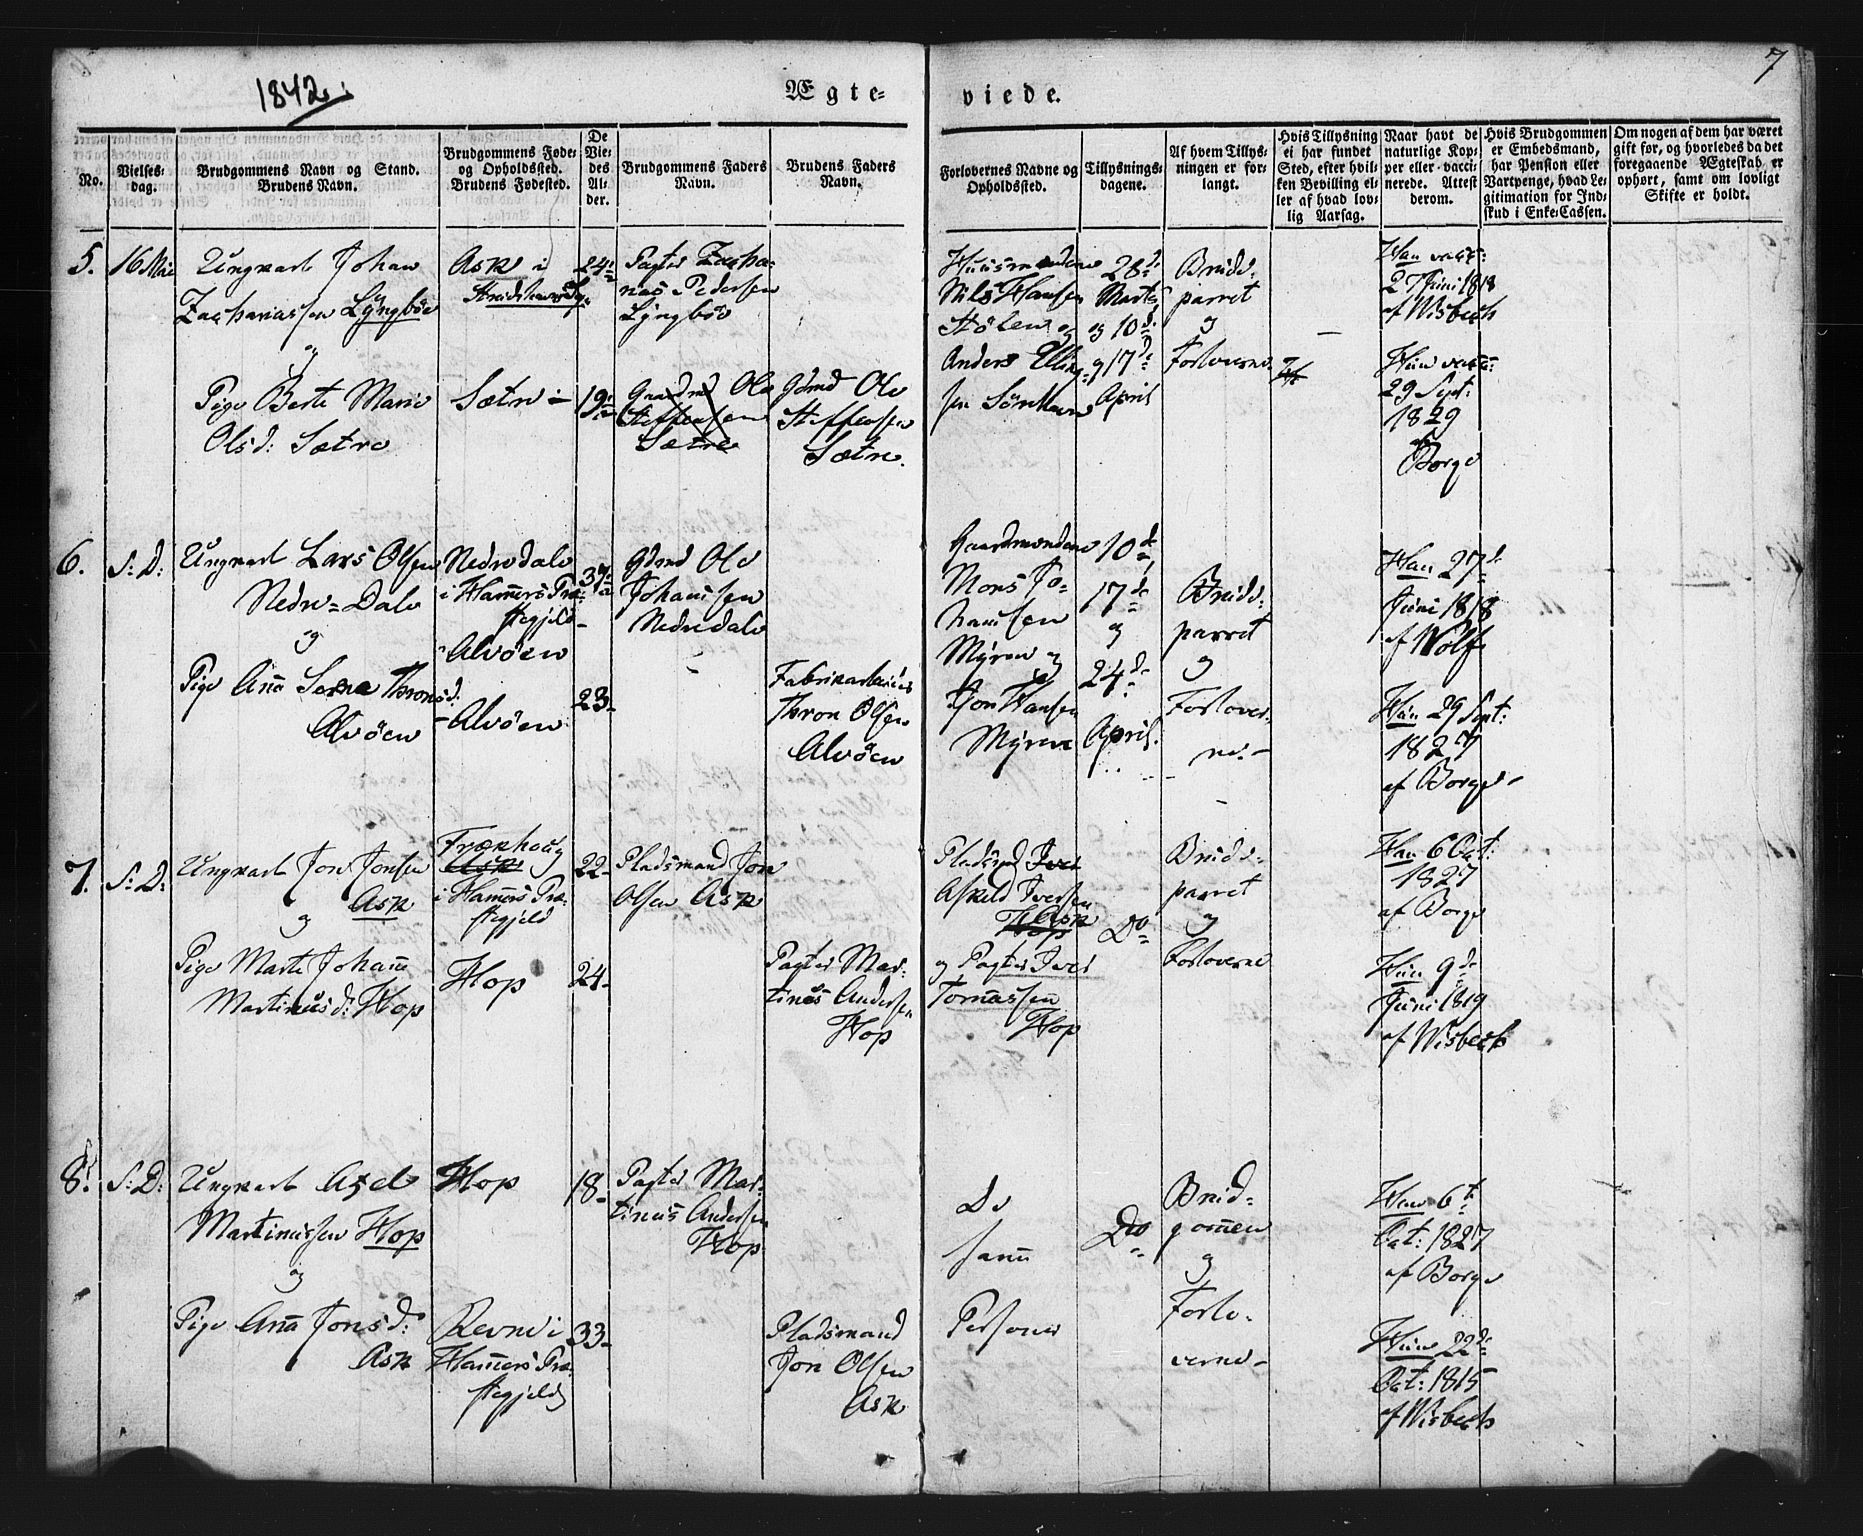 1842.
7
Ægte-
viede.
No.
Vielses-
dag.
Brudgommens Navn og Stand.
Brudens Navn.
Brudgommens Føde-
og Opholdssted.
Brudens Fødested.
De
Vie-
des
Al-
der.
Brudgommens Faders
Navn.
Brudens Faders
Navn.
Forlovernes Navne og
Opholdssted.
Tillysnings-
dagene.
Af hvem Tillys-
ningen er for-
langt.
Hvis Tillysning
ei har fundet
Sted, efter hvil-
ken Bevilling el-
ler af hvad lov-
lig Aarsag.
Naar havt de
naturlige Kop-
per eller vacci-
nerede. Attest
derom.
Hvis Brudgommen
er Embedsmand,
har Pension eller
Vartpenge, hvad Le-
gitimation for Ind-
skud i Enke-Cassen.
Om nogen af dem har været
gift før, og hvorledes da det
foregaaende Ægteskab er
ophørt, samt om lovligt
Skifte er holdt.
5.
16 Mai
Ungkarl Johan
Zachariassen Lÿngböe
og
Pige Berte Marie
Olsd: Sætre
Ask i
Sætre -
24
19
Pagter Zacha-
rias Pedersen
Lÿngböe
Gaardmd Ole
Steffensen
Sætre
Gdmd Ole
Steffensen
Sætre.
Huusmændene
Nils Hansen
Stölen og
Anders Elling-
sen
28de
Marts
og 10de
og 17de
April
Brude-
parret
og
Forloverne
Han vacc:
27 Juni 1818
af Wisbech
Hun vacc:
29 Sept:
1829
af
Borge
6.
S: D:
Ungkarl Lars Olsen
Nedre-Dale
og
Pige Ana Serne Thronsd:
Alvöen
Nedredale
i Hamers Præ-
stegjeld
Alvöen
Alvöen
37
23
Gdmd Ole
Johannesen
Nedredale
Fabrikarbeider
Thron Olsen
Alvöen
Gaardmændene
Mons Jo-
hannesen
Mÿren og
Jon Hansen
Mÿren
10de
17de
og
24de
April.
Brude-
parret
og
Forlover-
ne.
Han 27de
Juni 1818
af Wolf
Hun 29 Sept:
1827
af Borge
7.
S: D:
Ungkarl Jon Jonsen
Ask
og
Pige Marte Johane
Martinusd: Hop
Fræphoug
Ask
i Hamers Præ-
stegjeld
Hop
22
24
Pladsmand Jon
Olsen Ask
Pagter Mar-
tinus Andersen
Hop
Pladsmd Iver
Askeld Iversen
Ask
Hop
og Pagter Iver
Tomassen
Hop
Do
Brude-
parret
og
Forloverne
Han 6 Oct:
1827
af Borge
Hun 9de
Juni 1819
af Wisbech
8.
S: D:
Ungkarl Axel
Martinussen Hop
og
Pige Ana Jonsd:
Ask
Hop
Revne i
Hamers Præ-
stegjeld
18
33
Pagter Mar-
tinus Andersen
Hop
Pladsmand
Jon Olsen
Ask
De
same
Personer
Do
Brud-
gomen
og
Forlo-
verne
Han 6t
Oct: 1827
af Borge
Hun 22de
Oct: 1815
af Wisbech